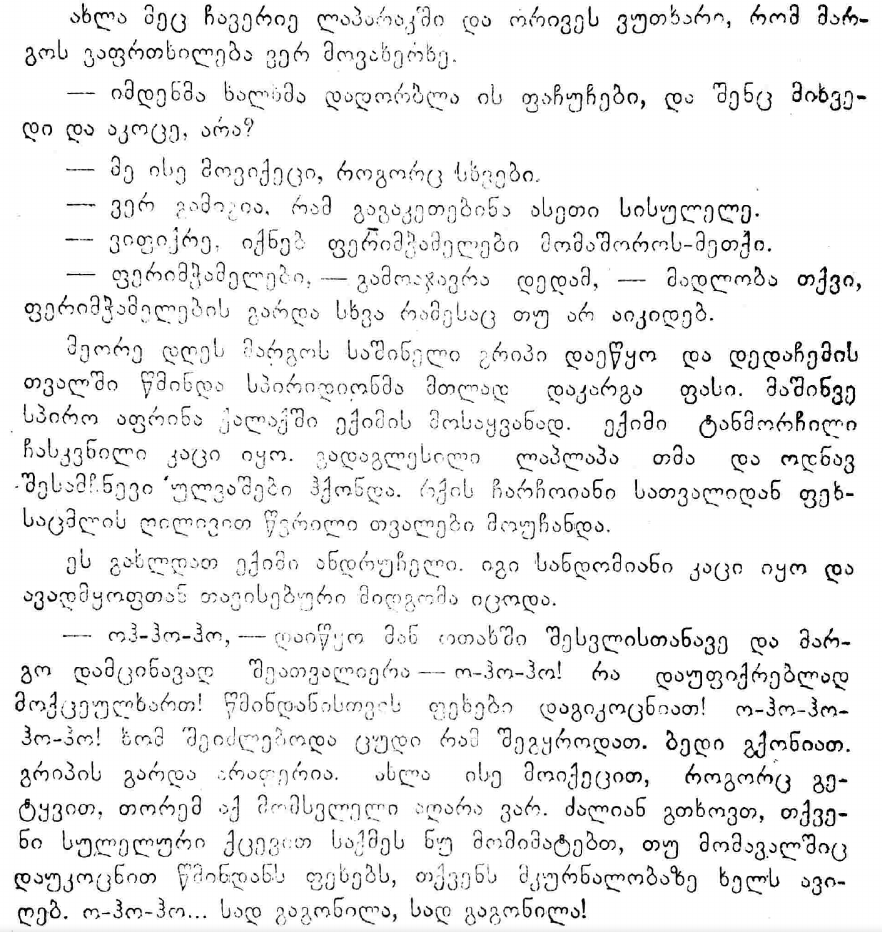 ახლა მეც ჩავერიე ლაპარაკში და ორივეს ვუთხარი, რომ მარ-
გოს გაფრთხილება ვერ მოვასწარი.
— იმდენმა ხალხმა დადორბლა ის ფაჩუჩები, და შენც მიხვე-
დი და აკოცე, არა?
— მე ისე მოვიქეცი, როგორც სხვები.
— ვერ გამიგია, რამ გაგაკეთებინა ასეთი სისულელე.
— ვიფიქრე, იქნებ ფერიმჭამელები მომაშოროს-მეთქი.
— ფერიმჭამელები, — გამოაჯავრა დედამ, — მადლობა თქვი,
ფერიმჭამელების გარდა სხვა რამესაც თუ არ აიკიდებ.
მეორე დღეს მარგოს საშინელი გრიპი დაეწყო და დედაჩემის
თვალში წმინდა სპირიდიონმა მთლად დაკარგა ფასი. მაშინვე
სპირო აფრინა ქალაქში ექიმის მოსაყვანად. ექიმი ტანმორჩილი
ჩასკვნილი კაცი იყო. გადაგლესილი ლაპლაპა თმა და ოდნავ
შესამჩნევი ულვაშები ჰქონდა. რქის ჩარჩოიანი სათვალიდან ფეხ-
საცმლის ღილივით წვრილი თვალები მოუჩანდა.
ეს გახლდათ ექიმი ანდრუჩელი. იგი სანდომიანი კაცი იყო და
ავადმყოფთან თავისებური მიდგომა იცოდა.
— ოჰ-ჰო-ჰო, — დაიწყო მან ოთახში შესვლისთანავე და მარ-
გო დამცინავად შეათვალიერა — ო-ჰო-ჰო! რა დაუფიქრებლად
მოქცეულხართ! წმინდანისთვის ფეხები დაგიკოცნიათ! ო-ჰო-ჰო-
ჰო-ჰო! ხომ შეიძლებოდა ცუდი რამ შეგყროდათ. ბედი გქონიათ.
გრიპის გარდა არაფერია. ახლა ისე მოიქეცით, როგორც გე-
ტყვით, თორემ აქ მომსვლელი აღარა ვარ. ძალიან გთხოვთ, თქვე-
ნი სულელური ქცევით საქმეს ნუ მომიმატებთ, თუ მომავალშიც
დაუკოცნით წმინდანს ფეხებს, თქვენს მკურნალობაზე ხელს ავი-
ღებ. ო-ჰო-ჰო... სად გაგონილა, სად გაგონილა!